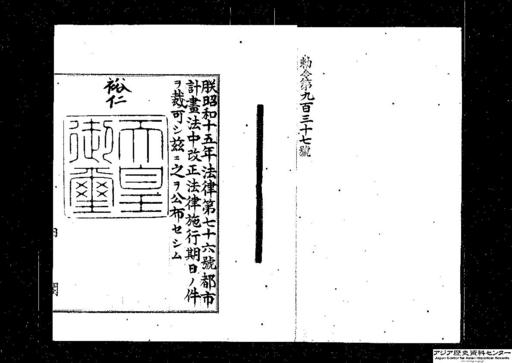 勅令第九百三十七號
朕昭和十五年法律第七十六號都市
計畫法中改正法律施行期日ノ件
ヲ裁可シ茲ニ之ヲ公布セシム
裕仁
天皇
御璽
内
閣
アジア歴史資料センター
Japan Center for Asian Historical Records